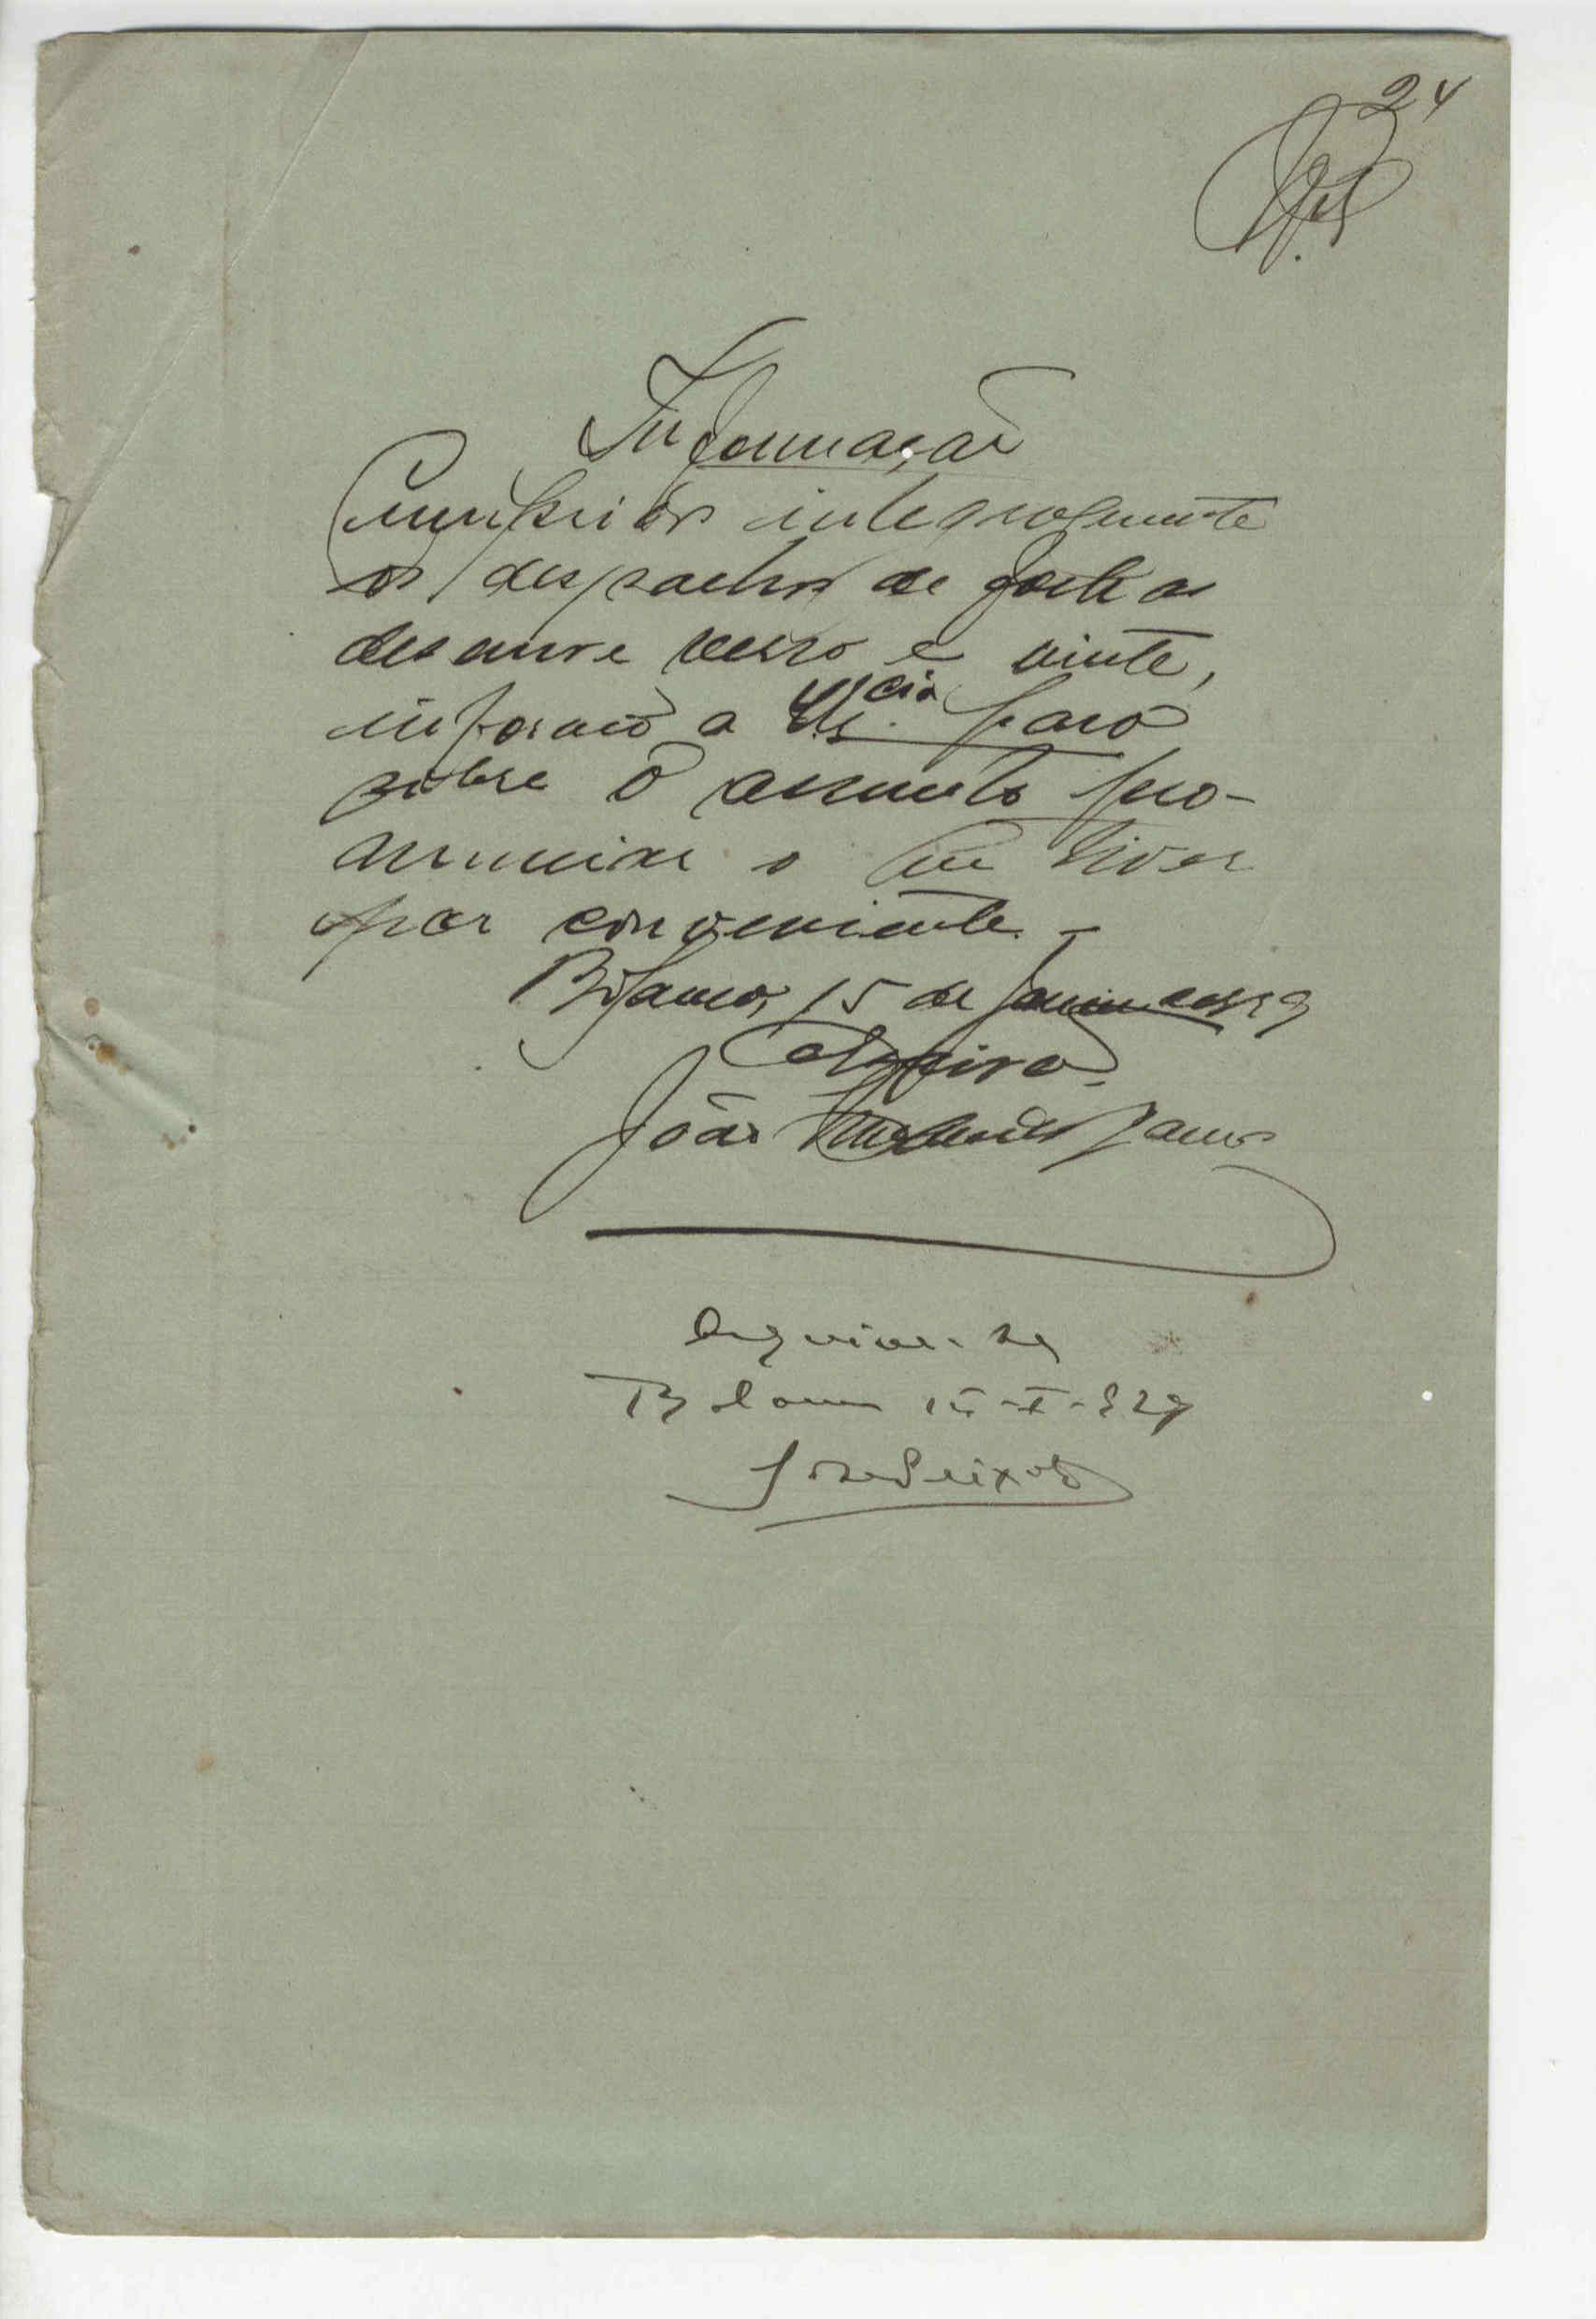 24
Informação
Cumpridos integralmente
os despachos de folhas
desanove verso e vinte,
informo a Vs.cia para
sobre o assunto pro-
nunciar o que tiver
por conveniente.
15 de Janeiro 929
João
Arquive-se
15-I-929
José Peixoto